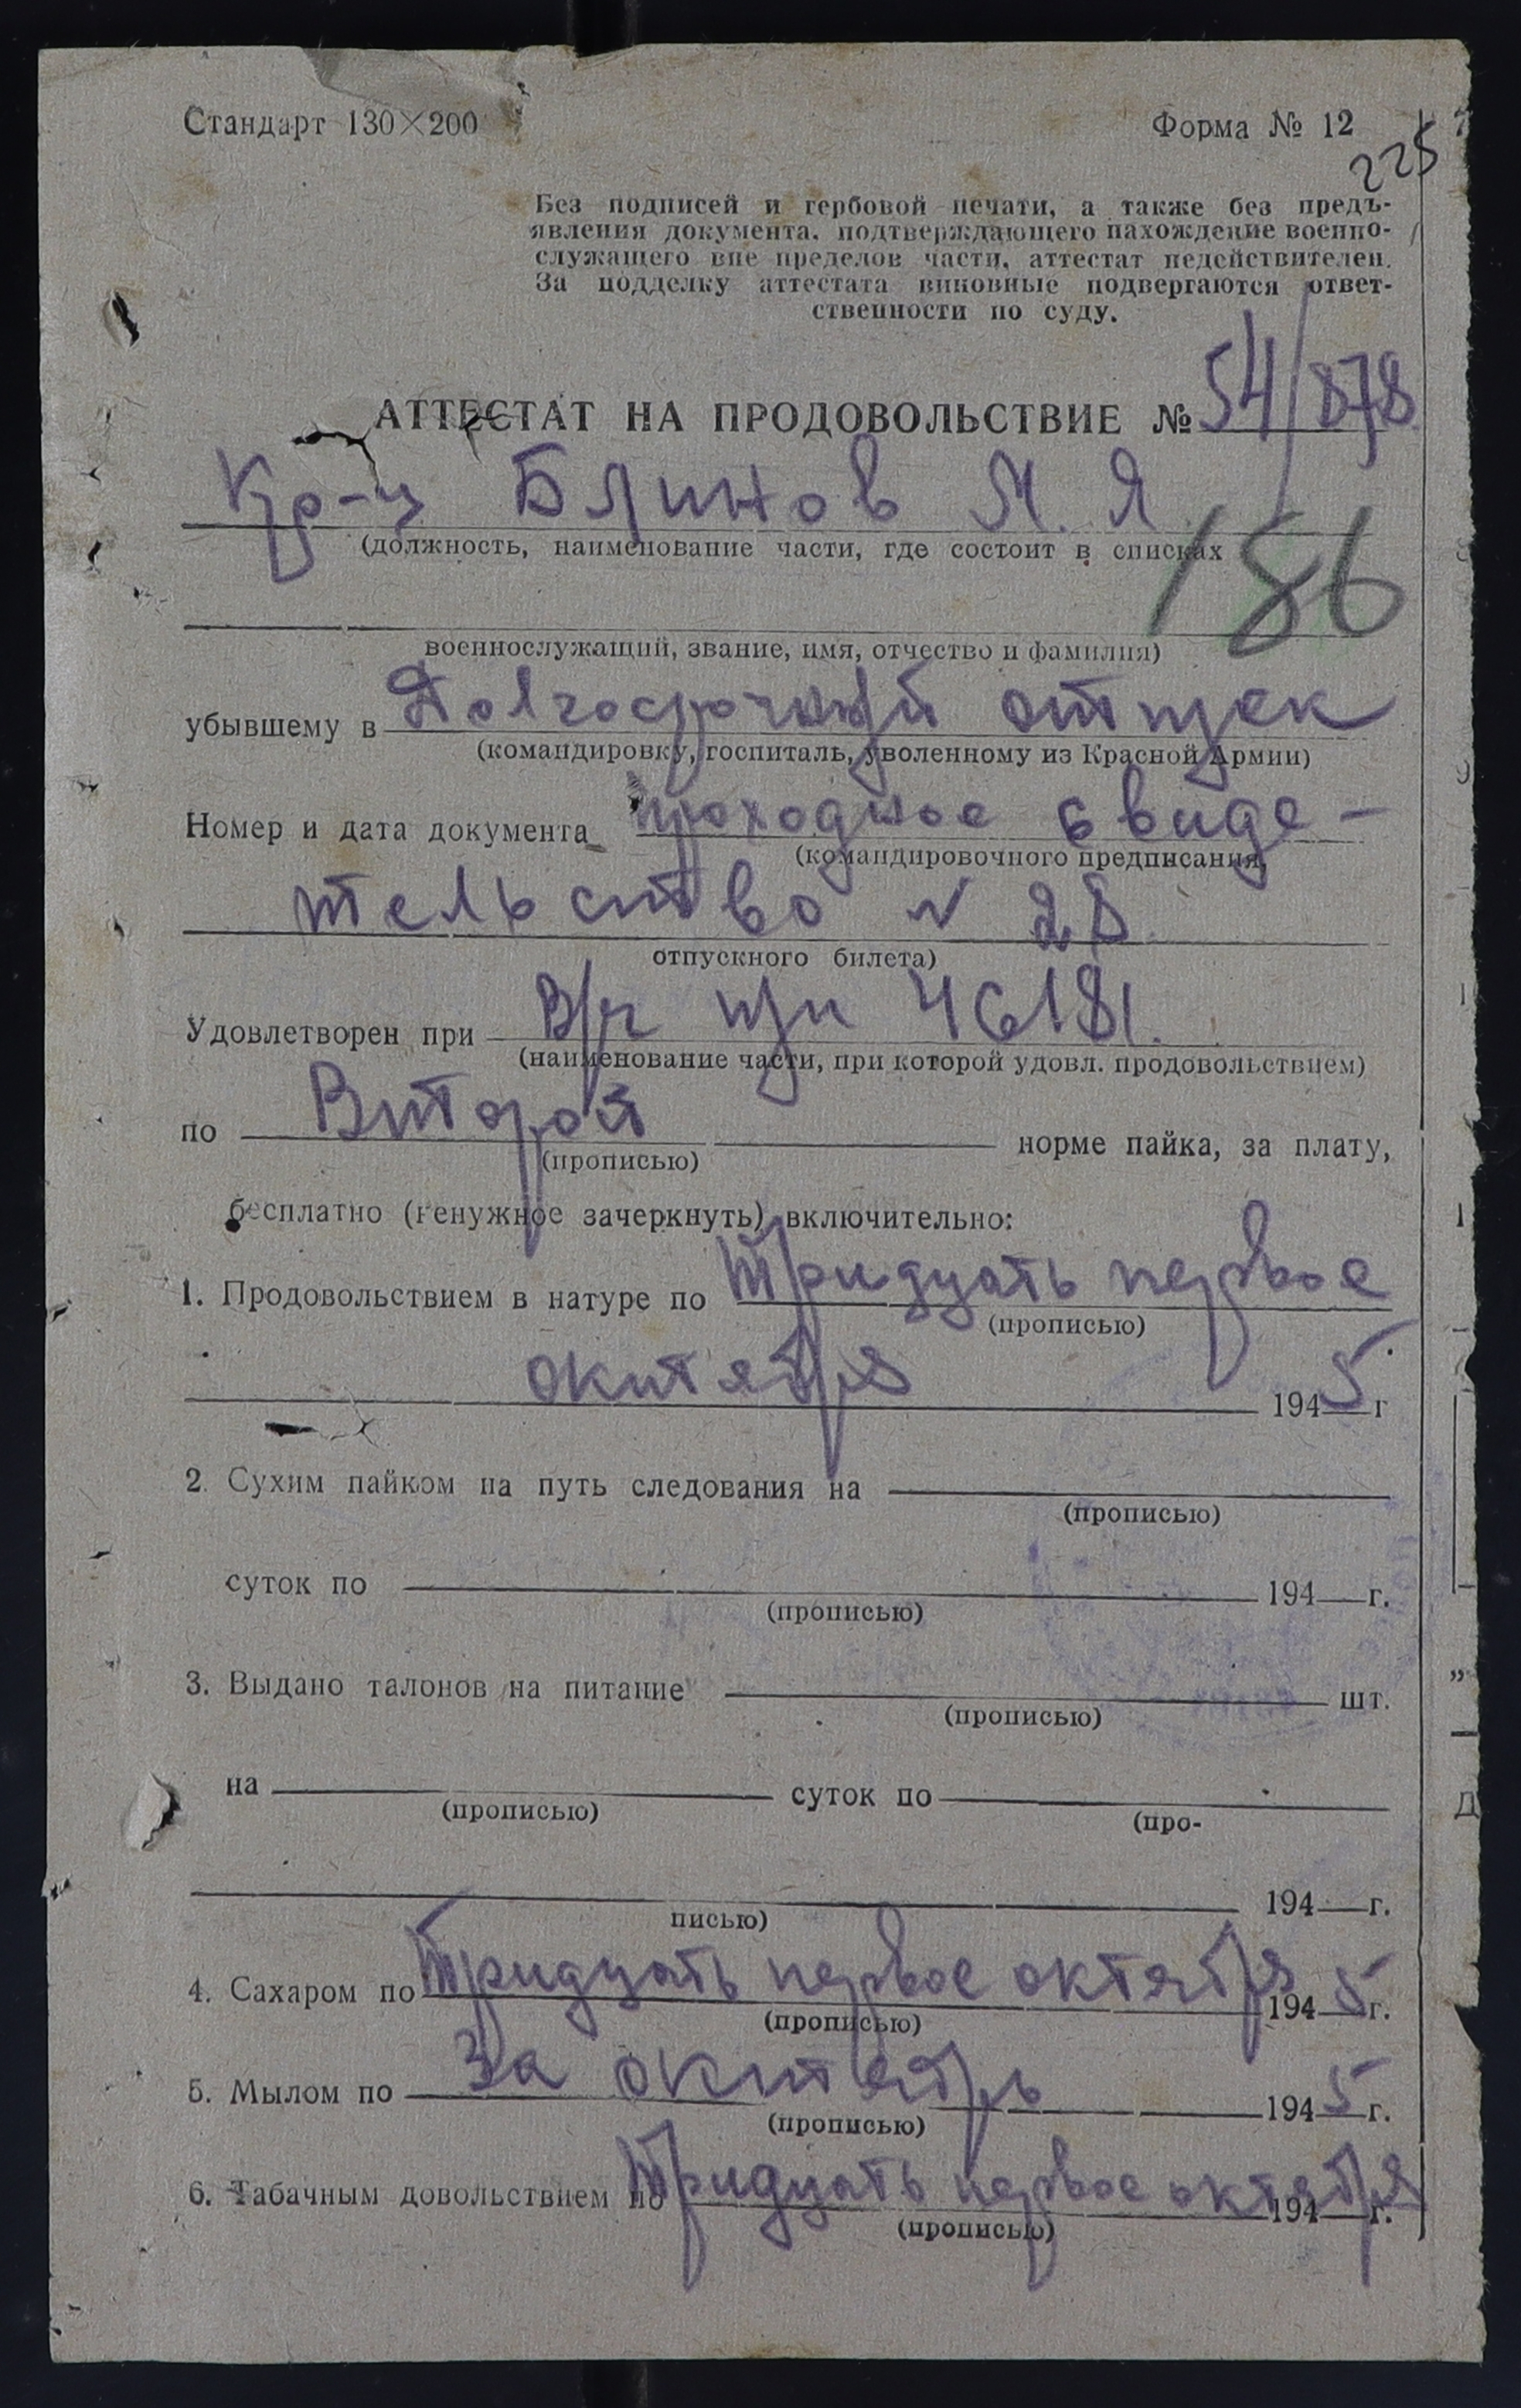 Стандарт 130×200
Форма № 12
225
Без подписей и гербовой печати, а также без предъ-
явления документа, подтверждающего нахождение военно-
служащего вне пределов части, аттестат недействителен.
За подделку аттестата виновные подвергаются ответ-
ственности по суду.
АТТЕСТАТ НА ПРОДОВОЛЬСТВИЕ № 54/878
Кр-ц Блинов М. Я
(должность, наименование части, где состоит в списках
186
военнослужащий, звание, имя, отчество и фамилия)
убывшему в Долгосрочный отпуск
(командировку, госпиталь, уволенному из Красной Армии)
Номер и дата документа проходное свиде-
(командировочного предписания,
тельство № 28
отпускного билета)
Удовлетворен при В/ч п/п 46181.
(наименование части, при которой удовл. продовольствием)
по Второй норме пайка, за плату,
(прописью)
бесплатно (ненужное зачеркнуть) включительно:
1. Продовольствием в натуре по Тридцать первое
(прописью)
октября 1945 г
2. Сухим пайком на путь следования на
(прописью)
суток по 194 г.
(прописью)
3. Выдано талонов на питание шт.
(прописью)
на суток по
(прописью) (про-
194 г.
писью)
4. Сахаром по Тридцать первое октября 1945 г.
(прописью)
5. Мылом по За октябрь 1945 г.
(прописью)
6. Табачным довольствием по Тридцать первое октября 194 г.
(прописью)